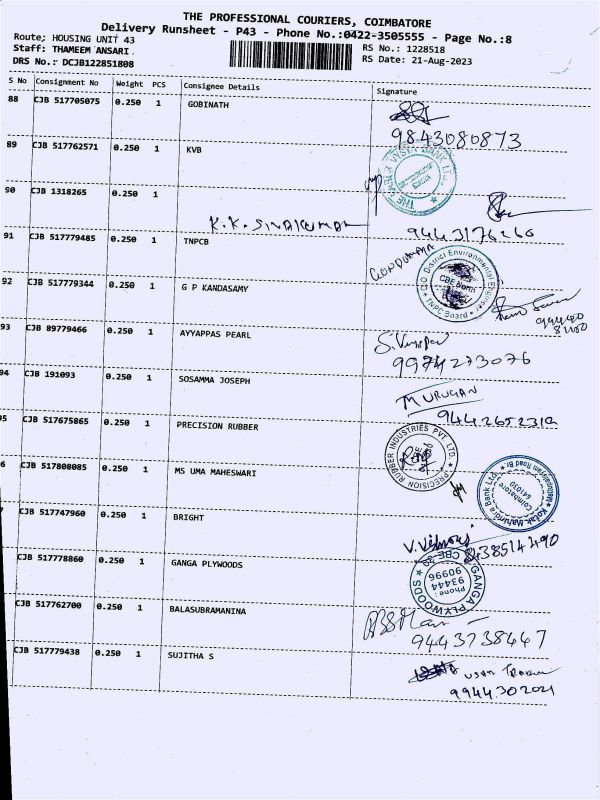 THE PROFESSIONAL COURIERS, COIMBATORE
Delivery Runsheet - P43 - Phone No.:0422-3505555 - Page No.:8
Route; HOUSING UNIT 43
Staff: THAMEEM ANSARI
DRS No.: DCJB122851808
RS No.: 1228518
RS Date: 21-Aug-2023
S No Consignment No Weight PCS Consignee Details Signature
88 CJB 517705075 0.250 1 GOBINATH
9843080873
89 CJB 517762571 0.250 1 KVB
90 CJB 1318265 0.250 1
K.K. SIVAKUMAR 9443176266
91 CJB 517779485 0.250 1 TNPCB
O/O. District Environmental Engineer
CBE North
TNPC Board
92 CJB 517779344 0.250 1 G P KANDASAMY
93 CJB 89779466 0.250 1 AYYAPPAS PEARL
9974273076
94 CJB 191093 0.250 1 SOSAMMA JOSEPH
MURUGAN
9442652319
95 CJB 517675865 0.250 1 PRECISION RUBBER
PRECISION RUBBER INDUSTRIES PVT. LTD.
6 CJB 517808085 0.250 1 MS UMA MAHESWARI
Kotak Mahindra Bank Ltd.
Coimbatore
641030
7 CJB 517747960 0.250 1 BRIGHT
CJB 517778860 0.250 1 GANGA PLYWOODS
GANGA PLYWOODS
CBE
Phone :
93444
90996
CJB 517762700 0.250 1 BALASUBRAMANINA
9443738447
CJB 517779438 0.250 1 SUJITHA S
9944302021